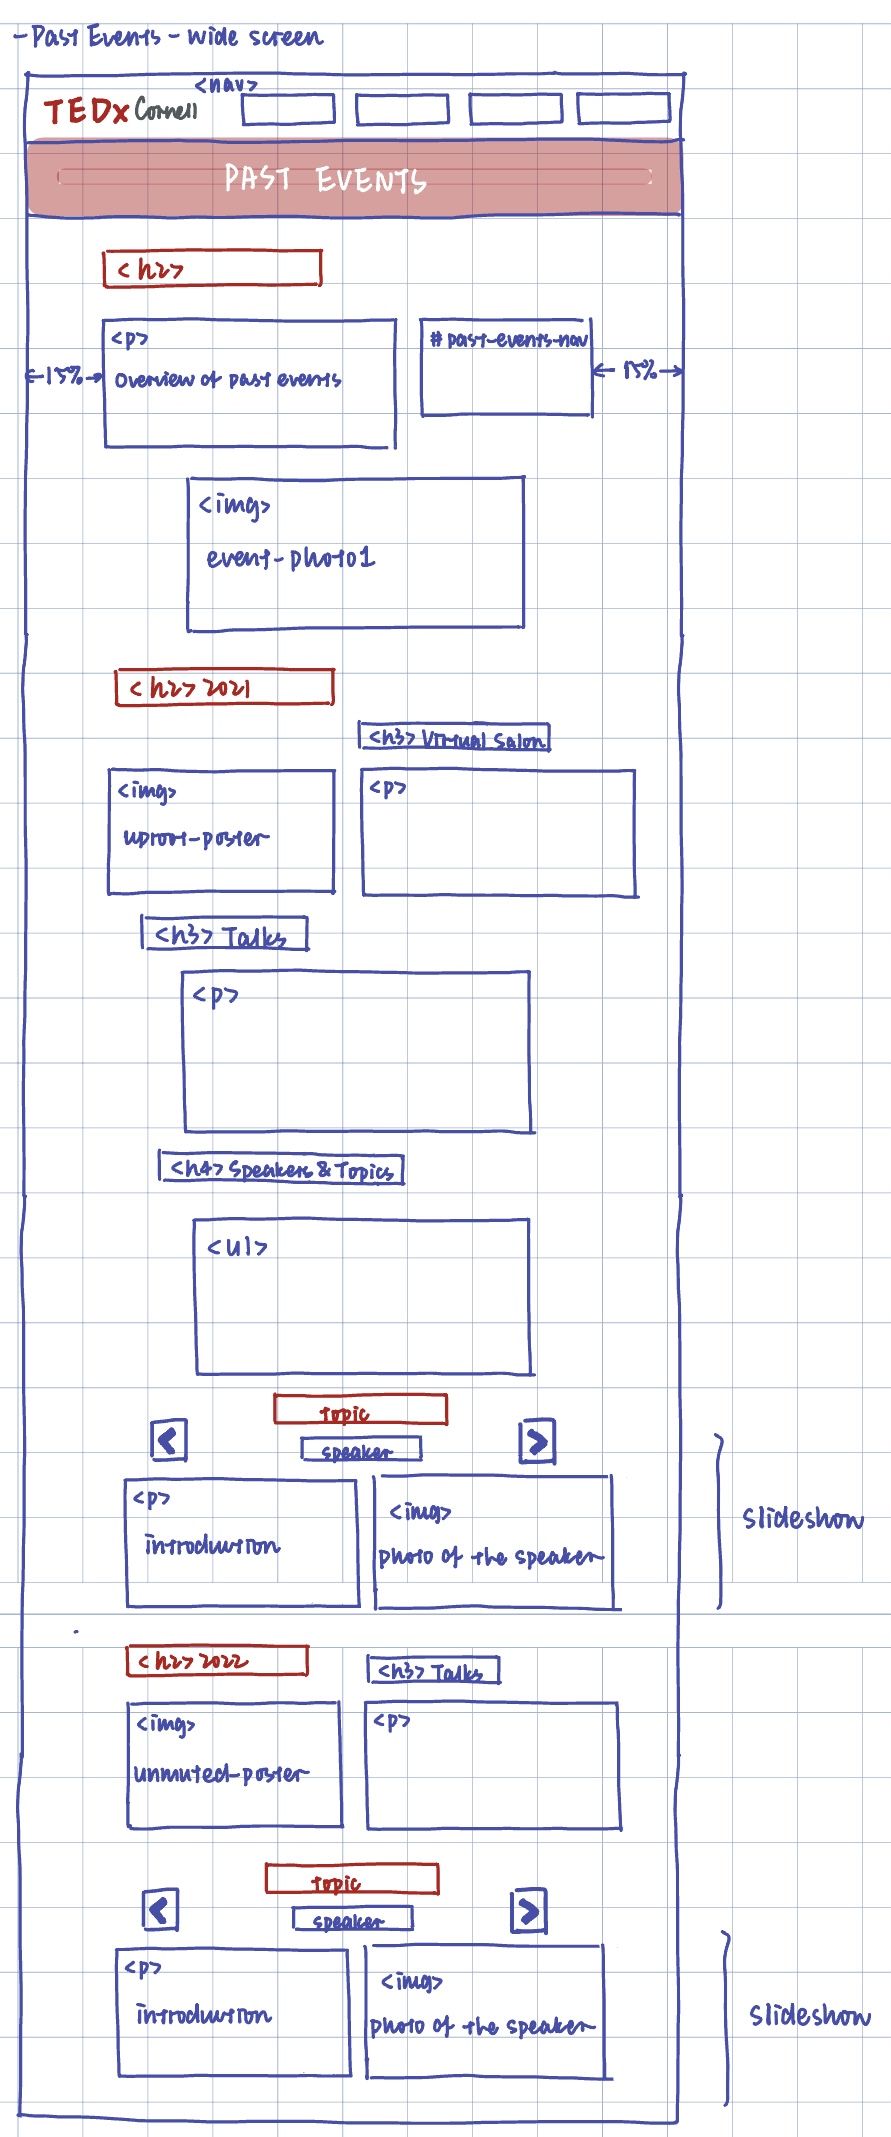 - Past Events - wide screen
<nav>
TEDx Cornell
PAST EVENTS
<h2>
<p>
# past-events-nav
Overview of past events
15%
15%
<img>
event-photo1
<h2> 2021
<h3> Virtual Salon
<img>
<p>
uproot-poster
<h3> Talks
<p>
<h4> Speakers & Topics
<ul>
topic
<
>
speaker
<p>
<img>
introduction
photo of the speaker
slideshow
<h2> 2022
<h3> Talks
<img>
<p>
unmuted-poster
topic
<
>
speaker
<p>
<img>
introduction
photo of the speaker
slideshow